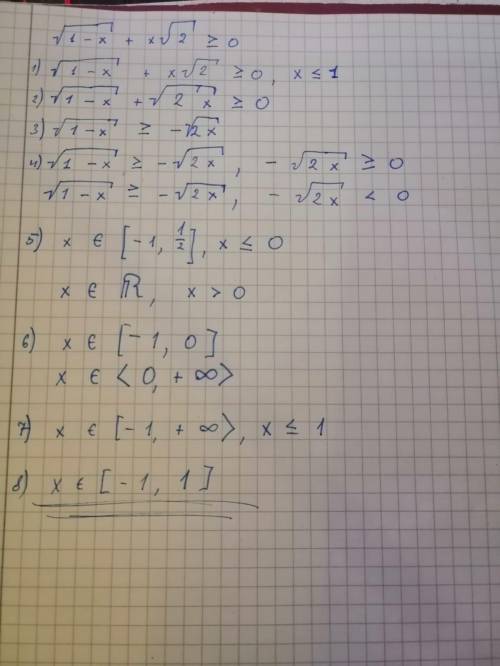 √1-x + x√2 ≥ 0
1) √1-x + x√2 ≥ 0, x ≤ 1
2) √1-x + √2 x ≥ 0
3) √1-x ≥ -√2x
4) √1-x ≥ -√2x, -√2x ≥ 0
√1-x ≥ -√2x, -√2x < 0
5) x ∈ [-1, 1/2], x ≤ 0
x ∈ ℝ, x > 0
6) x ∈ [-1, 0]
x ∈ ⟨0, +∞⟩
7) x ∈ [-1, +∞⟩, x ≤ 1
8) x ∈ [-1, 1]